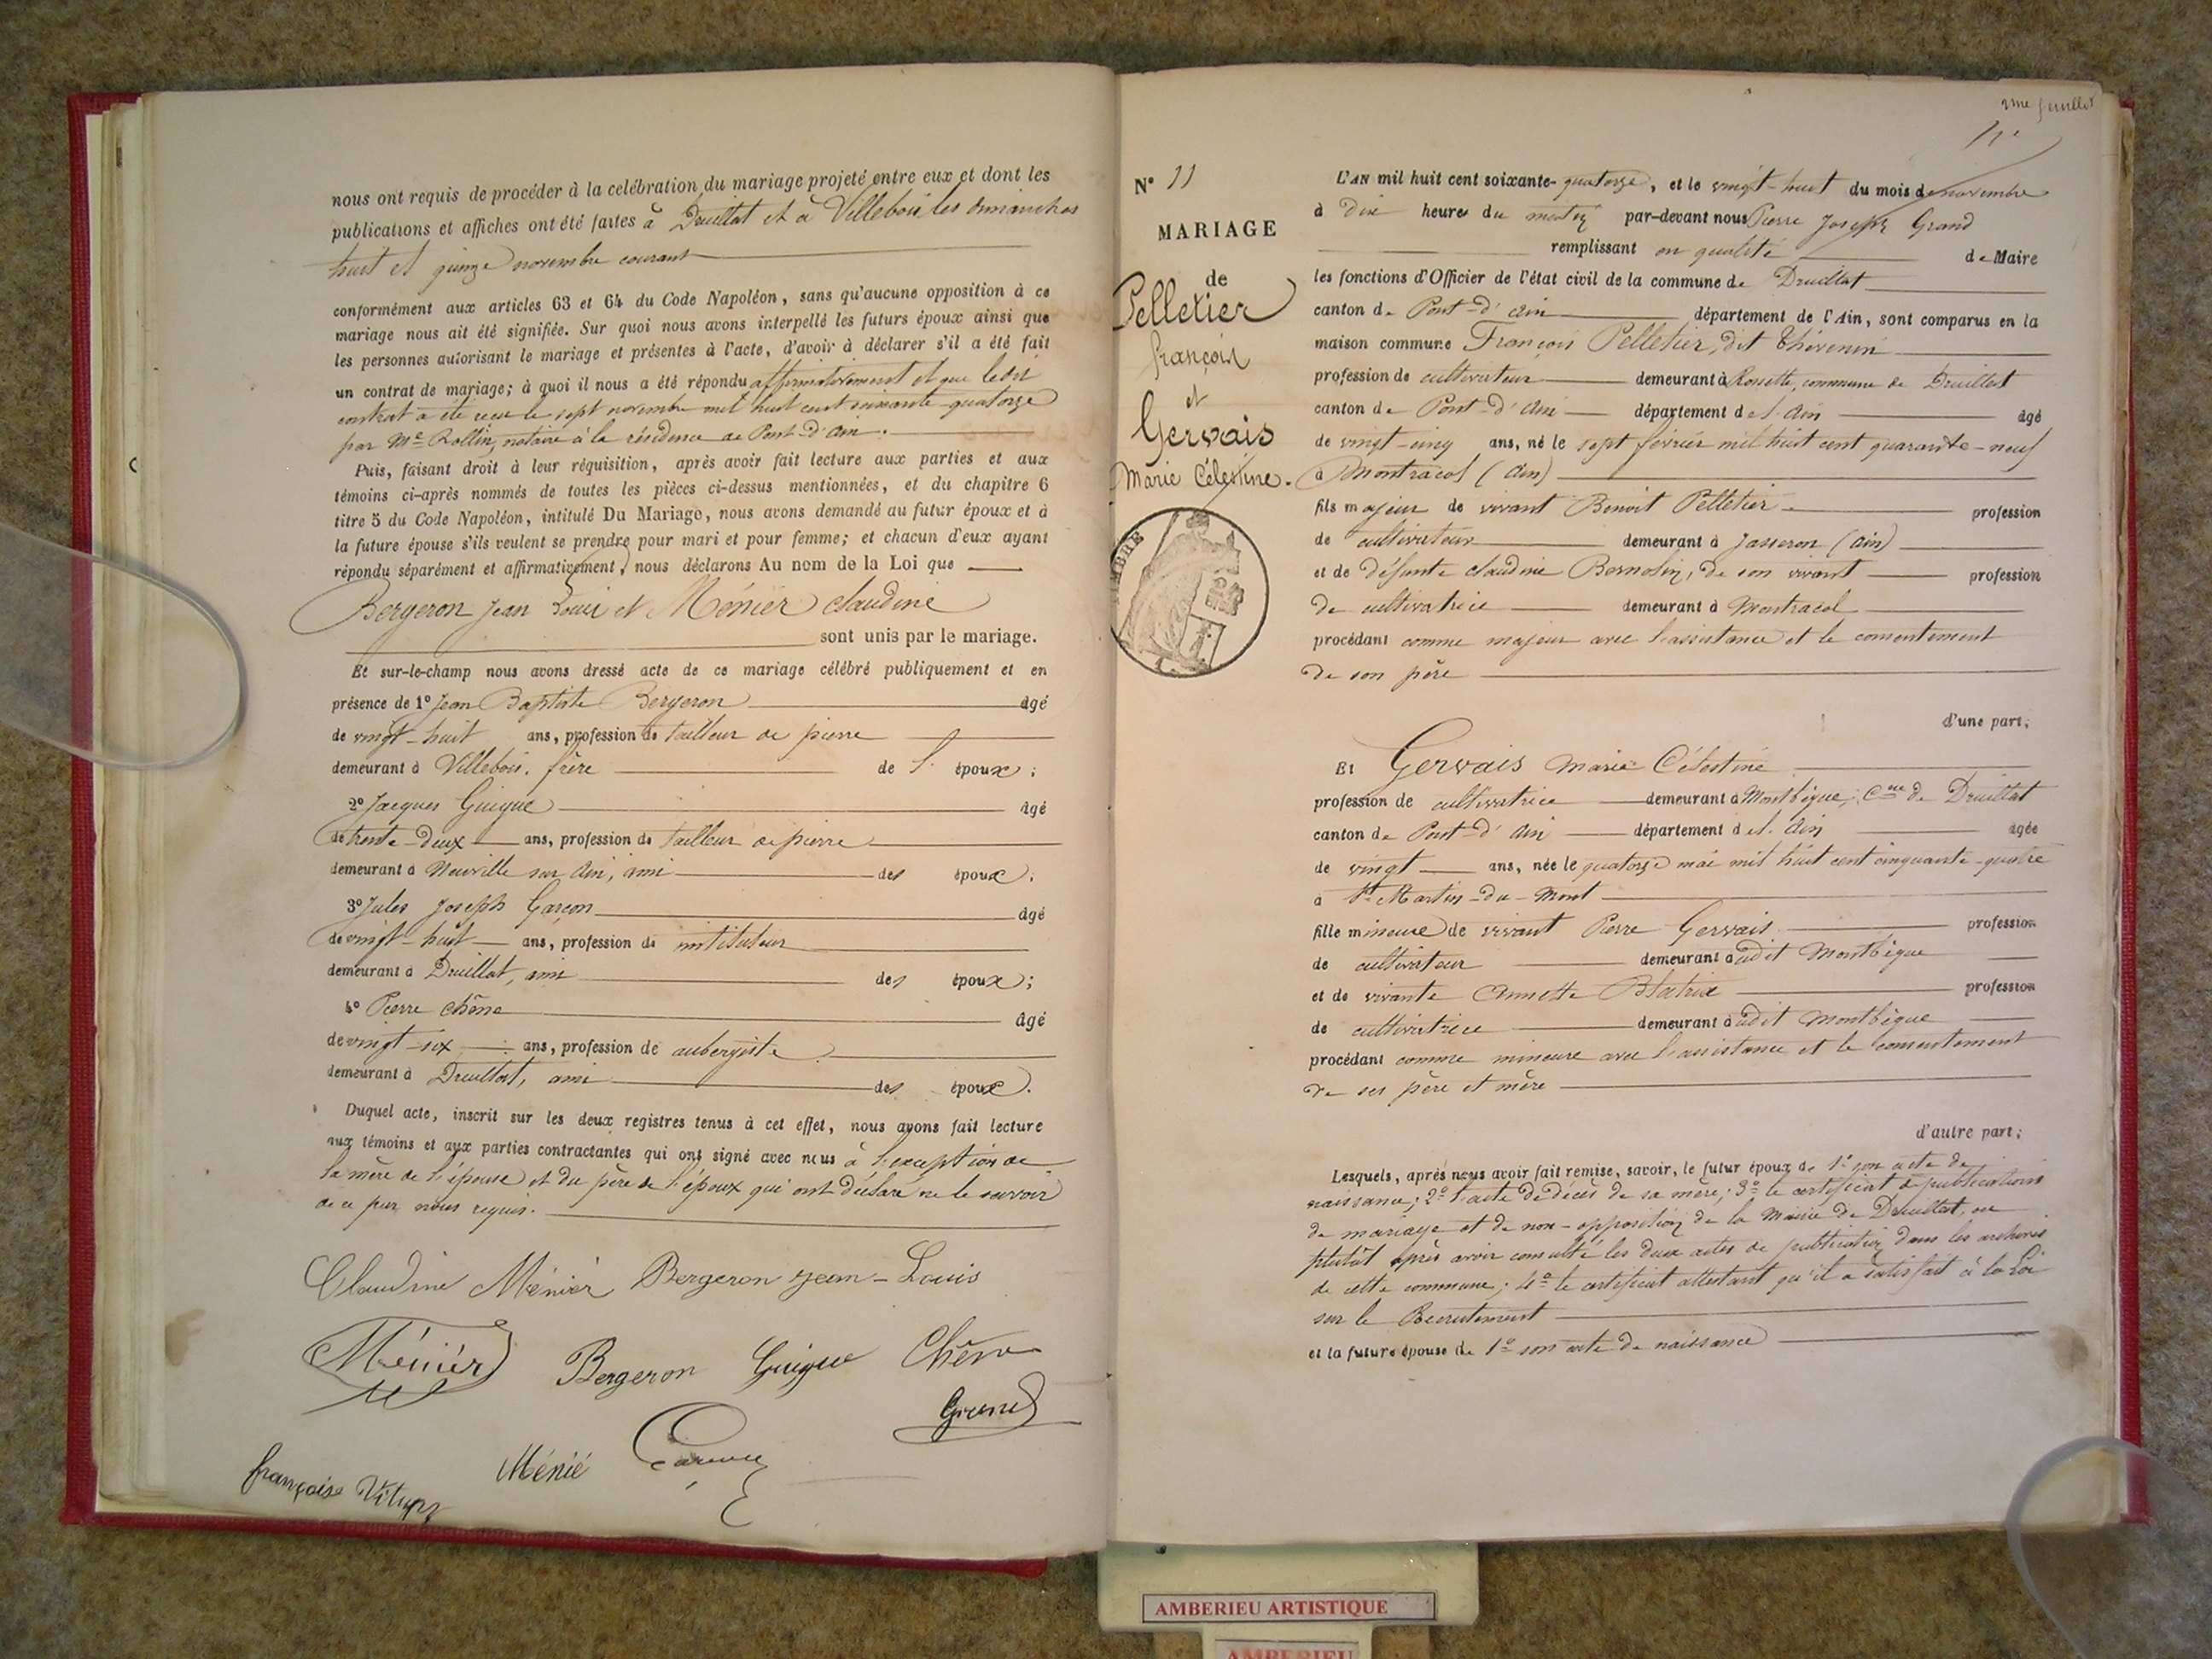 nous ont requis de procéder à la celébration du mariage projeté entre eux et dont les
publications et affiches ont été faites à Druillat et à Villebois les dimanches
huit et quinze novembre courant
conformément aux articles 63 et 64 du Code Napoléon, sans qu'aucune opposition à ce
mariage nous ait été signifiée. Sur quoi nous avons interpellé les futurs époux ainsi que
les personnes autorisant le mariage et présentes à l'acte, d'avoir à déclarer s'il a été fait
un contrat de mariage; à quoi il nous a été répondu affirmativement et que ledit
contrat a été recu le sept novembre mil huit cent soixante quatorze
par Me Rollin, notaire à la résidence de Pont-d'ain.
Puis, faisant droit à leur réquisition, après avoir fait lecture aux parties et aux
témoins ci-après nommés de toutes les pièces ci-dessus mentionnées, et du chapitre 6
titre 5 du Code Napoléon, intitulé Du Mariage, nous avons demandé au futur époux et à
la future épouse s'ils veulent se prendre pour mari et pour femme; et chacun d'eux ayant
répondu séparément et affirmativement, nous déclarons Au nom de la Loi que
Bergeron Jean Louis et Ménier Claudine
sont unis par le mariage.
Et sur-le-champ nous avons dressé acte de ce mariage célébré publiquement et en
présence de 1° Jean Baptiste Bergeron âgé
de vingt-huit ans, profession de tailleur de pierre
demeurant à Villebois, frère de l' époux;
2° Jacques Guigue âgé
de trente-deux ans, profession de tailleur de pierre
demeurant à Neuville sur Ain, ami des époux.
3° Jules Joseph Garçon âgé
de vingt-huit ans, profession de instituteur
demeurant à Druillat, ami des époux;
4° Pierre Chêne âgé
de vingt-six ans, profession de aubergiste
demeurant à Druillat, ami des époux.
Duquel acte, inscrit sur les deux registres tenus à cet effet, nous avons fait lecture
aux témoins et aux parties contractantes qui ont signé avec nous à l'exception de
la mère de l'épouse et du père de l'époux qui ont déclaré ne le savoir
de ce par nous requis.
Claudine Ménier Bergeron Jean-Louis
Ménier Bergeron Guigue Chêne
Grand
françoise Ménié
2me feuillet
N° 11
MARIAGE
de
Pelletier
françois
et
Gervais
Marie Célestine.
TIMBRE
L'AN mil huit cent soixante-quatorze, et le vingt-huit du mois de novembre
à dix heures du matin par-devant nous Pierre Joseph Grand
remplissant en qualité de Maire
les fonctions d'Officier de l'état civil de la commune de Druillat
canton de Pont-d'ain département de l'Ain, sont comparus en la
maison commune François Pelletier, dit Thévenin
profession de cultivateur demeurant à Rossette, commune de Druillat
canton de Pont-d'Ain département de l'Ain âgé
de vingt-cinq ans, né le sept février mil huit cent quarante-neuf
à Montracol (Ain)
fils majeur de vivant Benoit Pelletier profession
de cultivateur demeurant à Jasseron (ain)
et de défunte Claudine Bernolin, de son vivant profession
de cultivatrice demeurant à Montracol
procédant comme majeur avec l'assistance et le consentement
de son père
d'une part;
Et Gervais Marie Célestine
profession de cultivatrice demeurant à Montbègue, Cne de Druillat
canton de Pont-d'Ain département de l'Ain âgée
de vingt ans, née le quatorze mai mil huit cent cinquante-quatre
à St Martin-du-Mont
fille mineure de vivant Pierre Gervais profession
de cultivateur demeurant audit Montbègue
et de vivante Annette Blatrix profession
de cultivatrice demeurant audit Montbègue
procédant comme mineure avec l'assistance et le consentement
de ses père et mère
d'autre part;
Lesquels, après nous avoir fait remise, savoir, le futur époux de 1° son acte de
naissance; 2° l'acte de décès de sa mère; 3° le certificat de publications
de mariage et de non-opposition de la Mairie de Druillat, ou
plutôt après avoir consulté les deux actes de publication dans les archives
de cette commune; 4° le certificat attestant qu'il a satisfait à la Loi
sur le Recrutement
et la future épouse de 1° son acte de naissance
AMBERIEU ARTISTIQUE
AMBERIEU